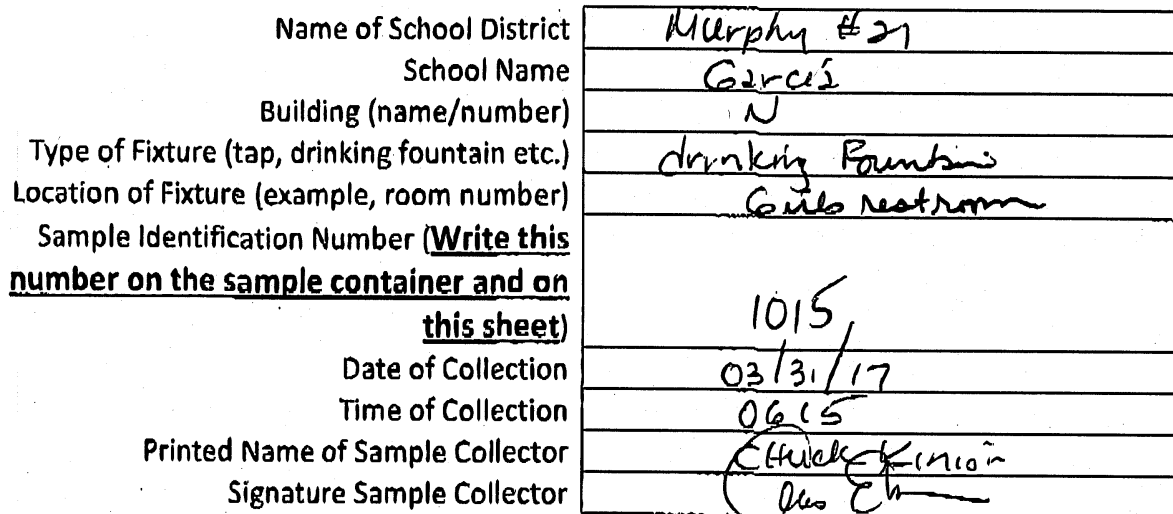 Name of School District Murphy #21
School Name Garcia
Building (name/number) N
Type of Fixture (tap, drinking fountain etc.) drinking Fountain
Location of Fixture (example, room number) Girls restroom
Sample Identification Number (Write this
number on the sample container and on
this sheet) 1015
Date of Collection 03/31/17
Time of Collection 0615
Printed Name of Sample Collector Chuck Kinion
Signature Sample Collector